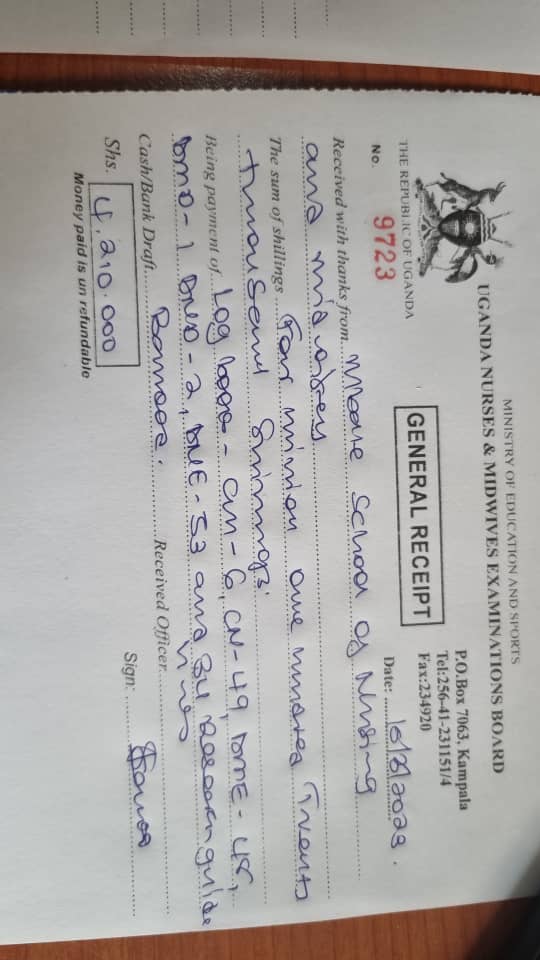 MINISTRY OF EDUCATION AND SPORTS
UGANDA NURSES & MIDWIVES EXAMINATIONS BOARD
P.O.Box 7063, Kampala
Tel:256-41-231151/4
Fax:234920
THE REPUBLIC OF UGANDA
GENERAL RECEIPT
No. 9723
Date: 16/8/2023.
Received with thanks from Mbale School of Nursing
and midwifery
The sum of shillings Four million one hundred Twenty
thousand Shillings.
Being payment of Log books - CM-6, CN-49, DME-48,
DMD-1 DND-2, DNE-53 and 34 research guide
lines
Cash/Bank Draft Baroda. Received Officer
Shs. 4,210.000
Sign:
Money paid is un refundable